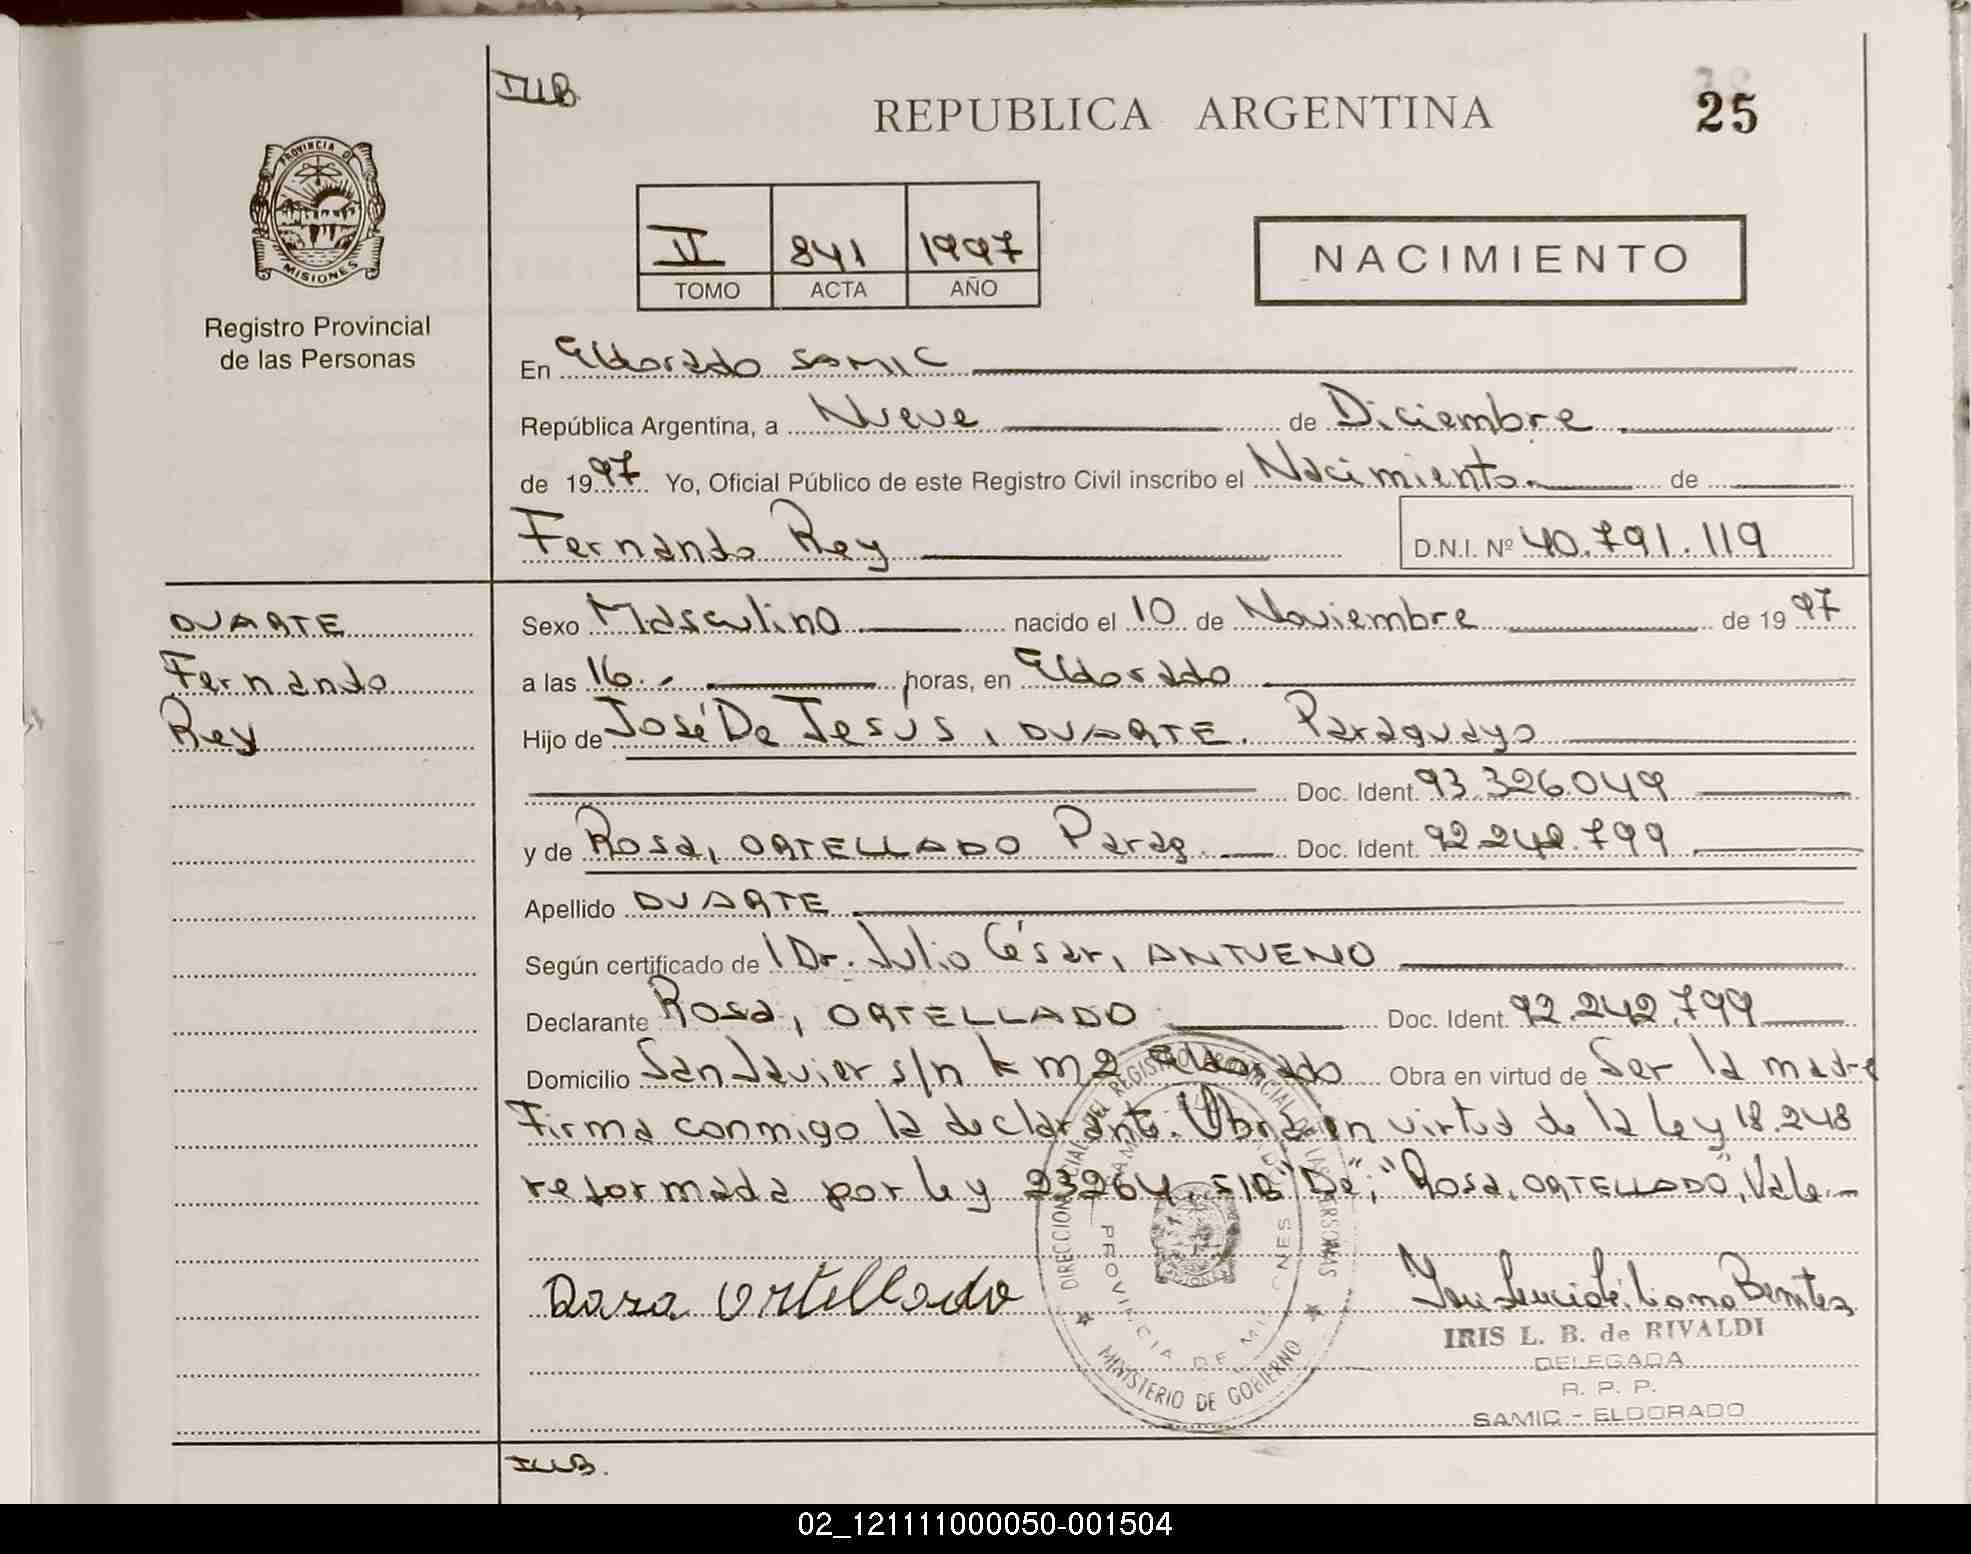 IUB
REPUBLICA ARGENTINA
25
PROVINCIA DE
MISIONES
Registro Provincial
de las Personas
II 841 1997
TOMO ACTA AÑO
NACIMIENTO
En Eldorado SAMIC
República Argentina, a Nueve de Diciembre
de 1997 Yo, Oficial Público de este Registro Civil inscribo el Nacimiento de
Fernando Rey D.N.I. Nº 40.791.119
DUARTE
Fernando
Rey
Sexo Masculino nacido el 10 de Noviembre de 1997
a las 16.- horas, en Eldorado
Hijo de José De Jesús, DUARTE. Paraguayo
Doc. Ident. 93.326.049
y de Rosa, ORTELLADO Parag. Doc. Ident. 92.242.799
Apellido DUARTE
Según certificado de l Dr. Julio César, ANTUENO
Declarante Rosa, ORTELLADO Doc. Ident. 92.242.799
Domicilio San Javier s/n km 2 Eldorado Obra en virtud de Ser la madre
Firma conmigo la declarante. Obra en virtud de la ley 18.248
reformada por ley 23264. S/B "De"; "Rosa, ORTELLADO", Vale.-
DIRECCION DEL REGISTRO PROVINCIAL DE LAS PERSONAS
PROVINCIA DE MISIONES
MINISTERIO DE GOBIERNO
Rosa Ortellado
Benitez
IRIS L. B. de RIVALDI
DELEGADA
R. P. P.
SAMIC - ELDORADO
IUB.
02_121111000050-001504